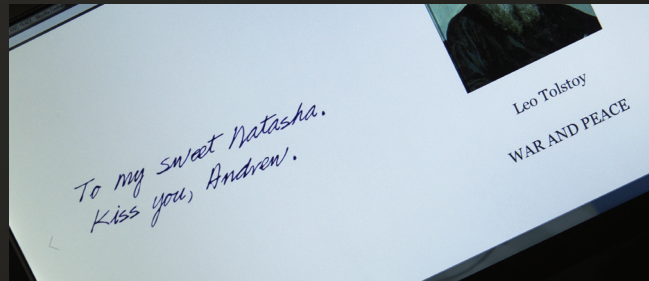 To my sweet Natasha.
Kiss you, Andrew.
Leo Tolstoy
WAR AND PEACE